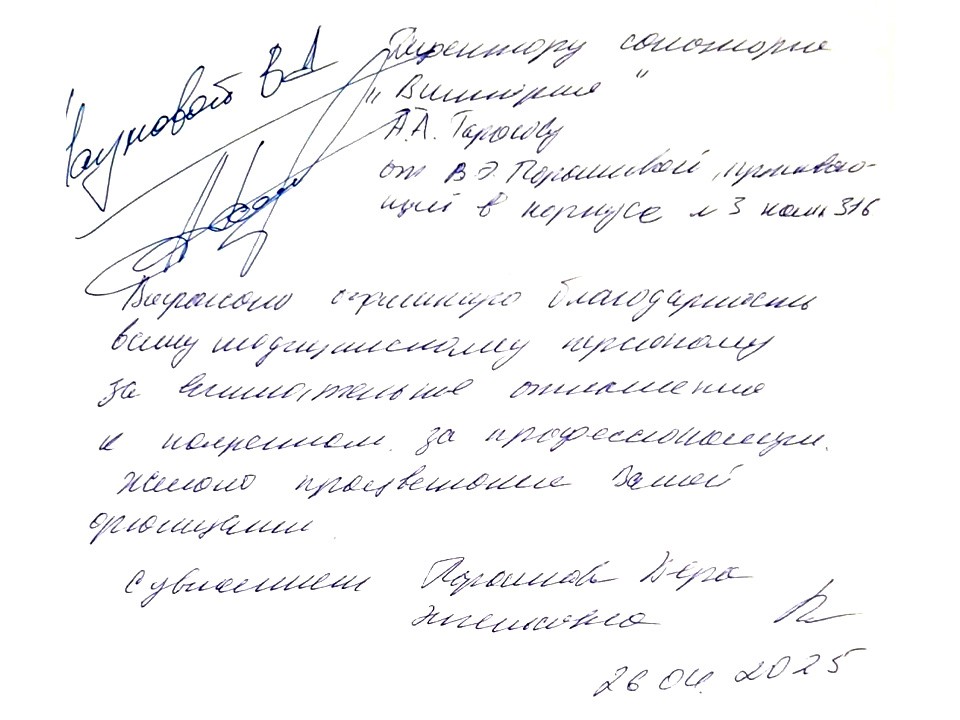 Науновой В А
Директору санатория
"Виктория"
А.А. Тарасову
от В.Э. Порошиной, проживаю-
щей в корпусе № 3 комн 316
Выражаю огромную благодарность
вашему медицинскому персоналу
за внимательное отношение
к пациентам, за профессионализм.
Желаю процветание Вашей
организации
С уважением Вера
26 04. 2025